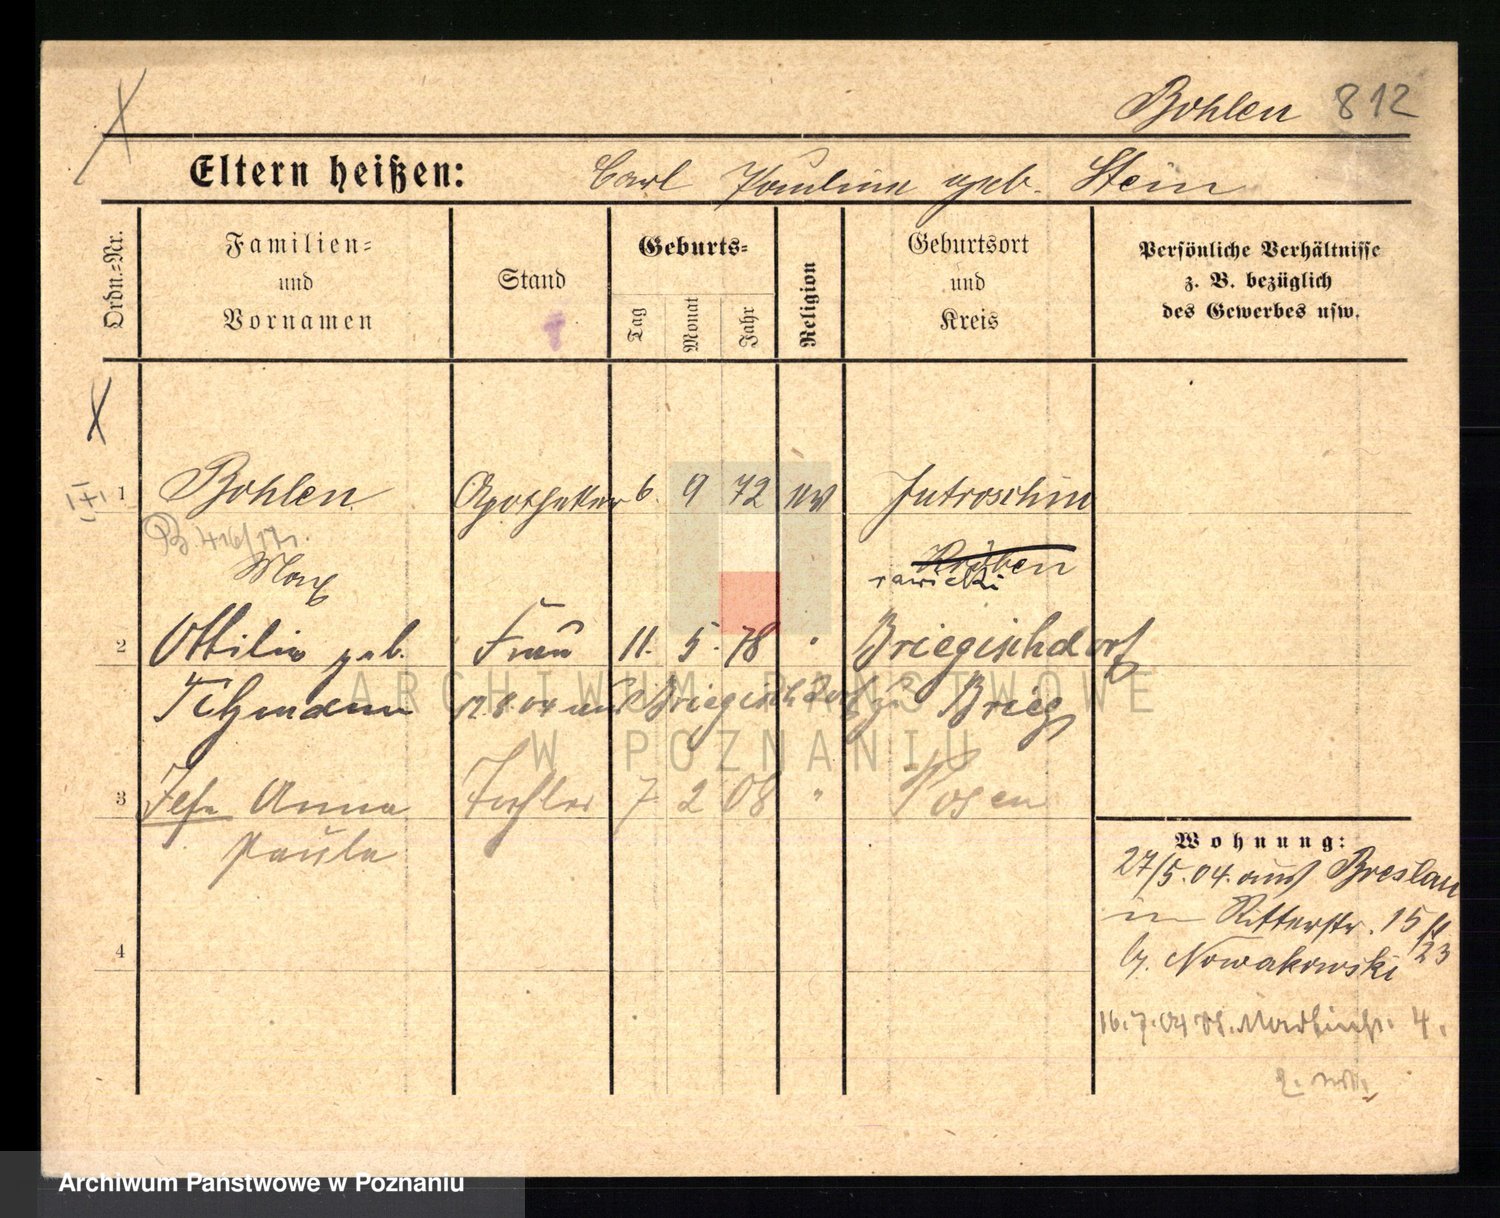 Bohlen 812
Eltern heißen: Carl Pauline geb. Stein
Ordn.=Nr.
Familien=
und
Vornamen
Stand
Geburts=
Tag
Monat
Jahr
Religion
Geburtsort
und
Kreis
Persönliche Verhältnisse
z. B. bezüglich
des Gewerbes usw.
1 Bohlen Apotheker 6. 9 72 Jutroschin
B. 416/17
Max Kröben
rawicki
2 Ottilie geb. Frau 11. 5. 78 " Briegischdorf
12.8.04 aus Briegischdorf Kr. Brieg
3 Ilse Anna Tochter 7. 2 08 " Posen
Paula
4
Wohnung:
27/5.04. aus Breslau
in Ritterstr. 15 II
b. Nowakowski 23
16.7.04 4.
ARCHIWUM PAŃSTWOWE
W POZNANIU
Archiwum Państwowe w Poznaniu